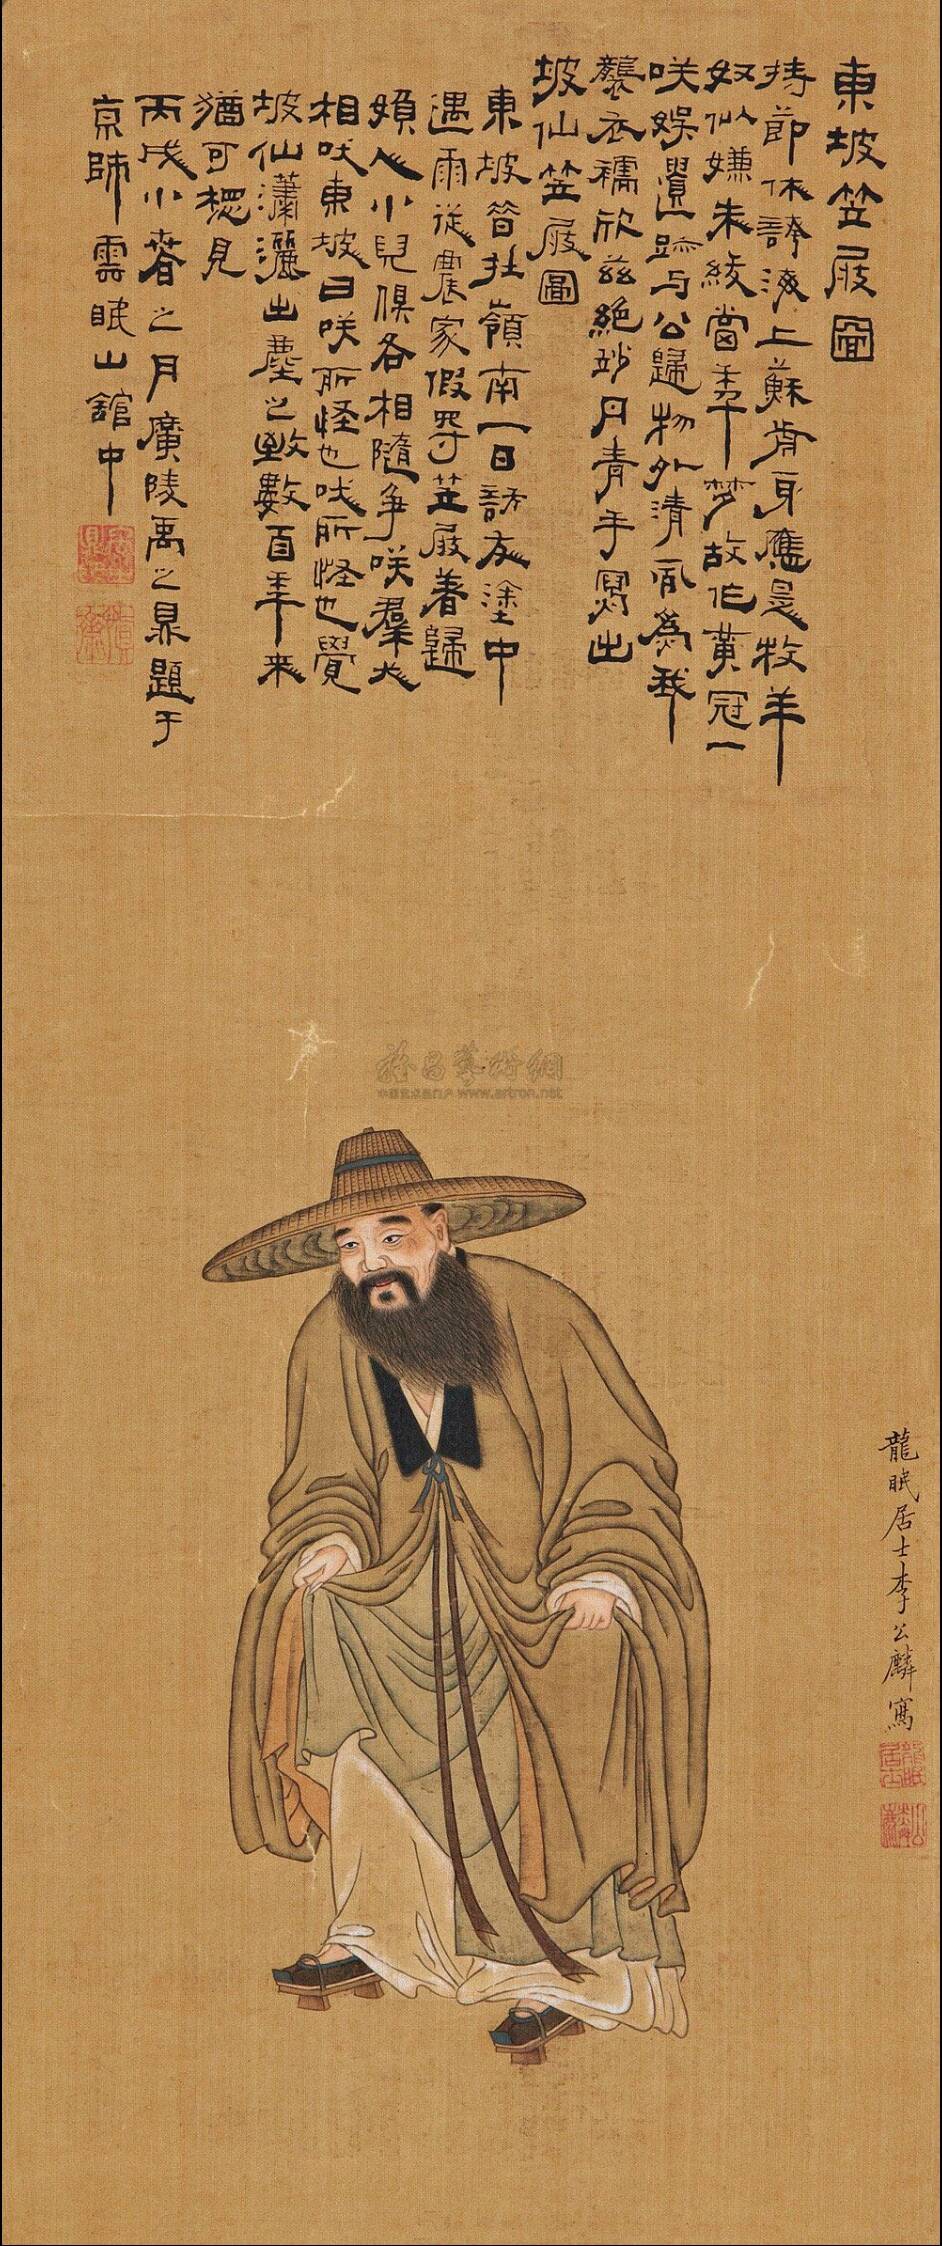 東坡笠屐圖
持節休誇海上蘇前身應是牧羊
奴似嫌朱紱當年夢故作黃冠一
咲娛遺跡与公歸物外清風為我
襲衣襦欣茲絕妙丹青手寫出
坡仙笠屐圖
東坡昔在嶺南一日訪友塗中
遇雨從農家假笠屐着歸
婦人小兒俱各相隨爭咲羣犬
相吠東坡曰咲所怪也吠所怪也覺
坡仙瀟灑出塵之致數百年來
猶可想見
丙戌小春之月廣陵禹之鼎題于
京師雲眠山館中
雅昌藝術網
www.artron.net
龍眠居士李公麟寫
龍眠居士